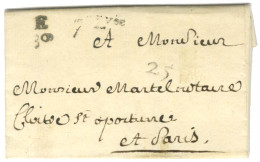 R
A Monsieur
25
Monsieur Martel notaire
Cloitre St oportune
A Paris.